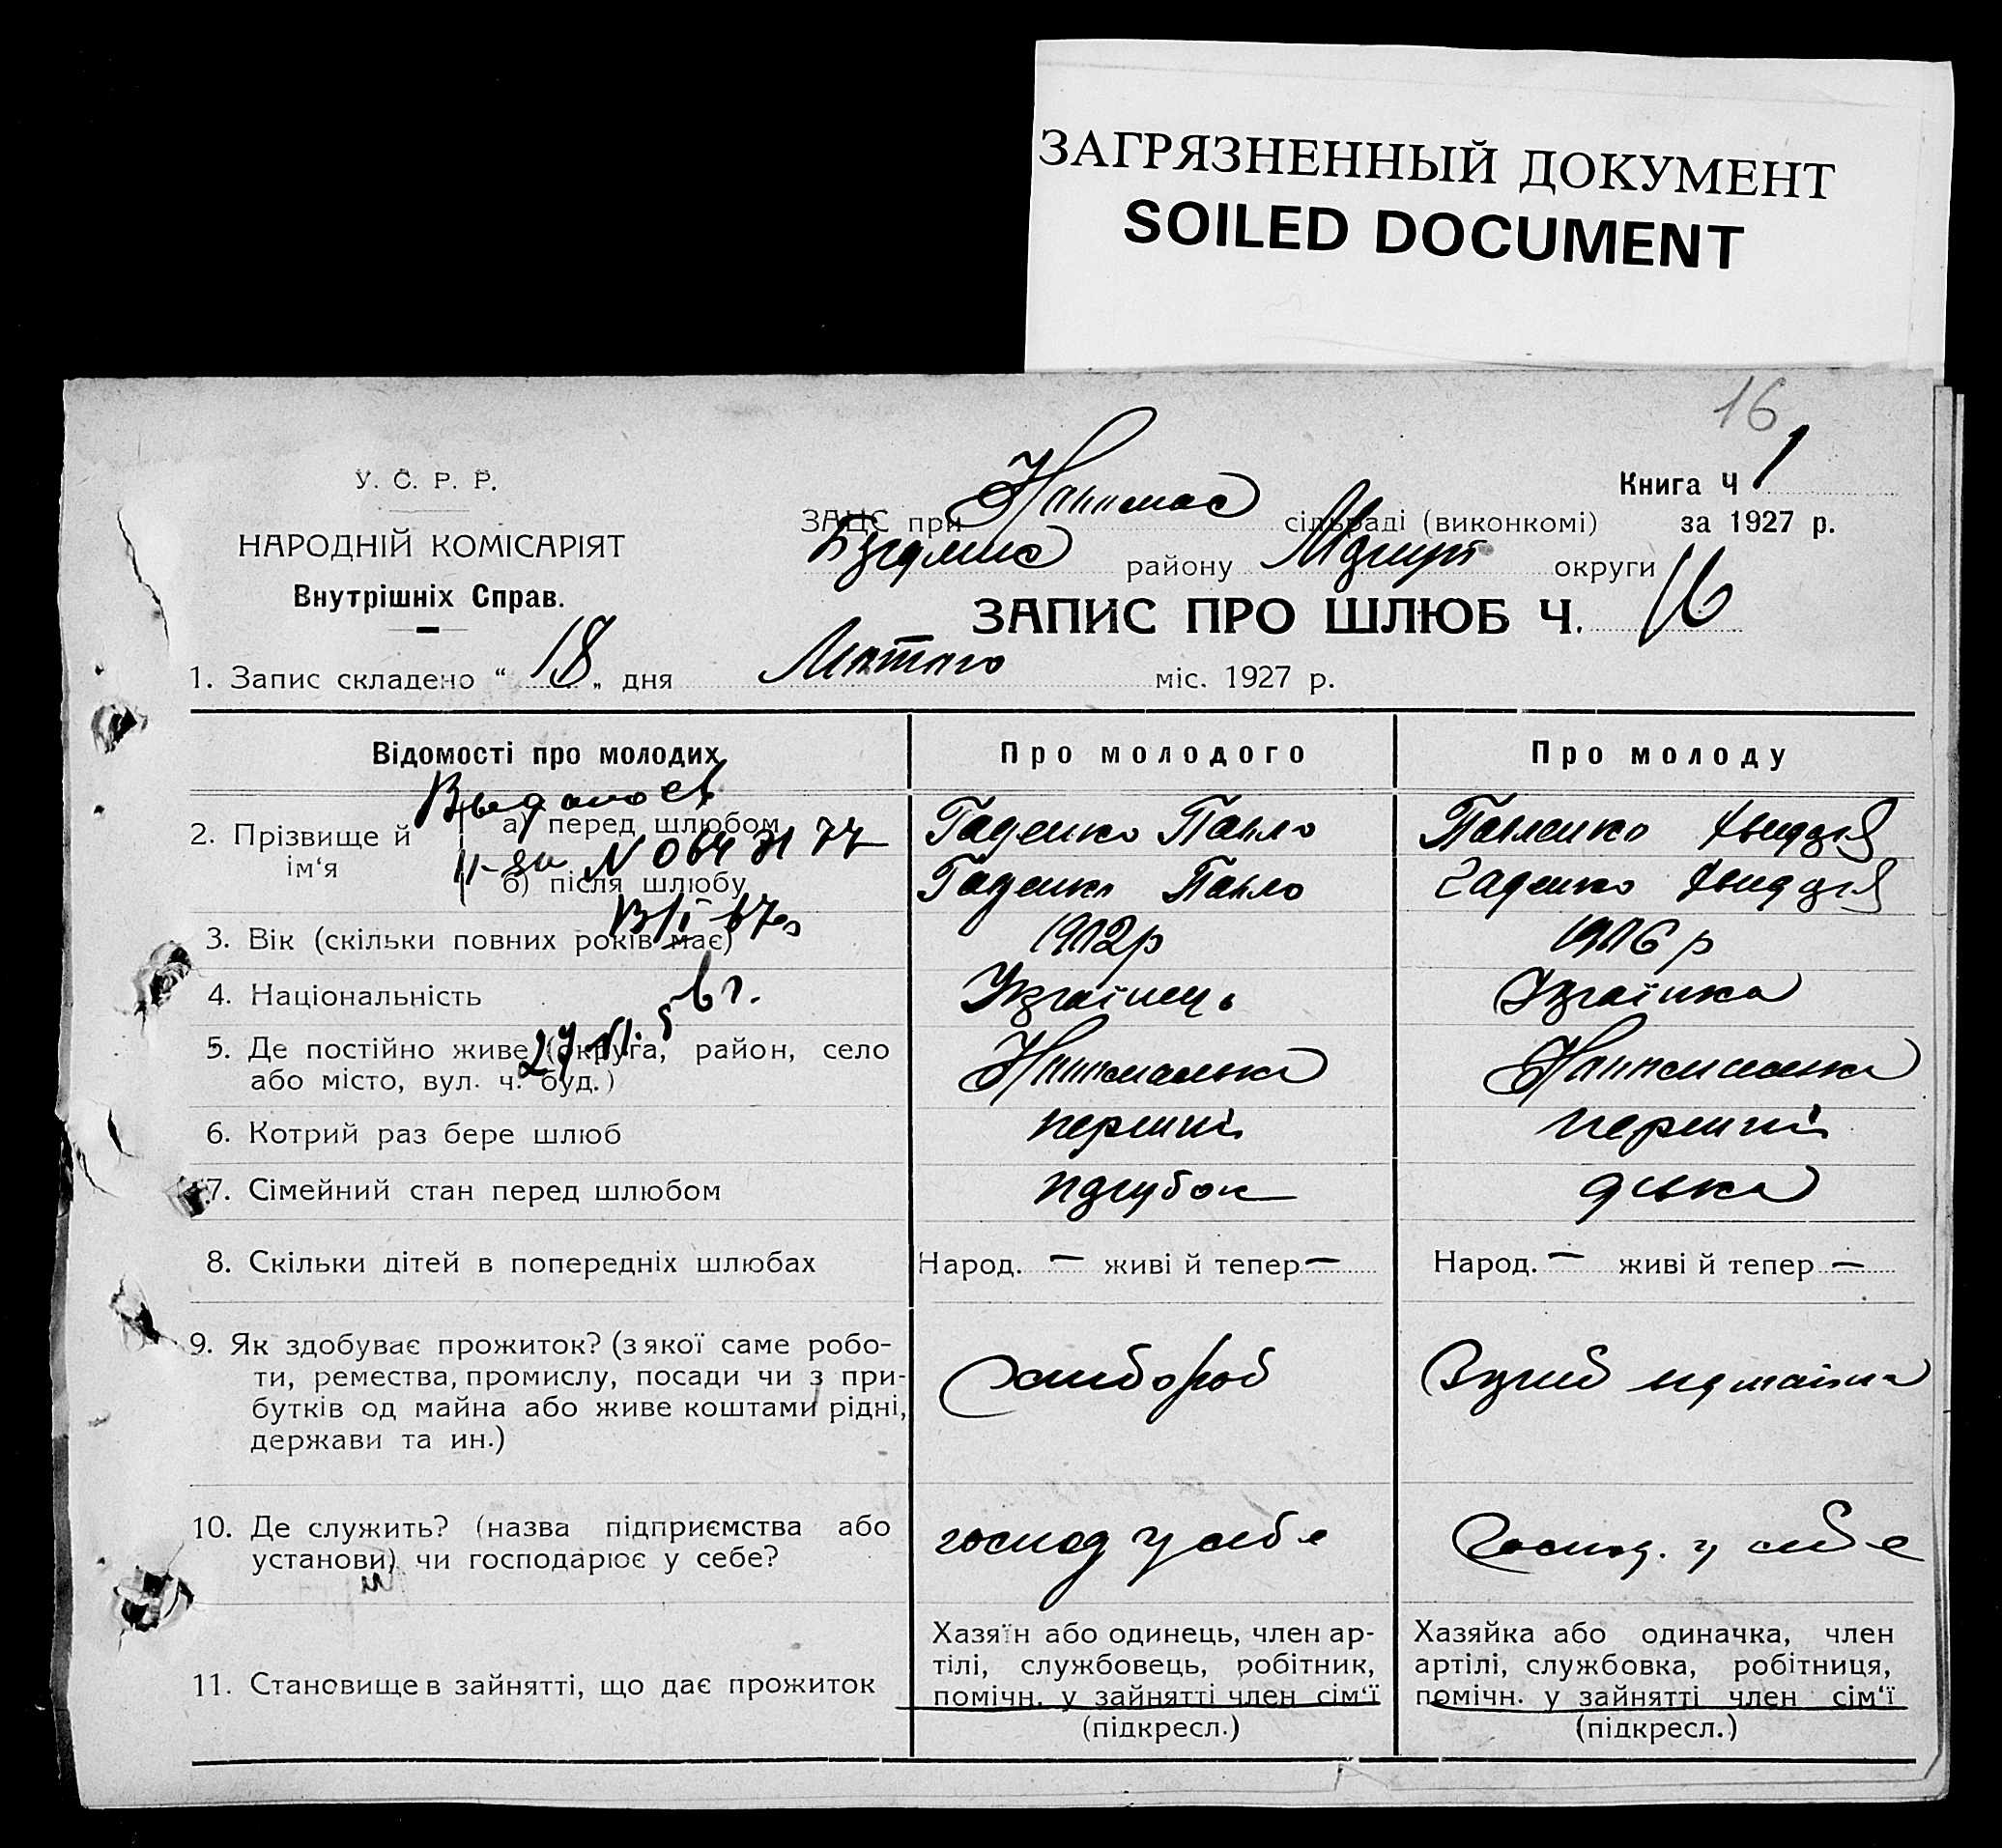 ЗАГРЯЗНЕННЫЙ ДОКУМЕНТ
SOILED DOCUMENT
16
У. С. Р. Р.
НАРОДНІЙ КОМІСАРІЯТ
Внутрішніх Справ.
Книга Ч 1
за 1927 р.
ЗАЦС при сільраді (виконкомі)
району округи
ЗАПИС ПРО ШЛЮБ Ч. 16
1. Запис складено “ 18 „ дня Лютого міс. 1927 р.
Відомості про молодих
Про молодого
Про молоду
2. Прізвище й ім‘я
а) перед шлюбом
Гаденко Павло
Павленко
б) після шлюбу
Гаденко Павло
Гаденко
3. Вік (скільки повних років має)
1902р
1906р
4. Національність
Українець
Українка
5. Де постійно живе (округа, район, село
або місто, вул. ч. буд.)
6. Котрий раз бере шлюб
перший
перший
7. Сімейний стан перед шлюбом
парубок
дівка
8. Скільки дітей в попередніх шлюбах
Народ. — живі й тепер —
Народ. — живі й тепер —
9. Як здобуває прожиток? (з якої саме робо-
ти, ремества, промислу, посади чи з при-
бутків од майна або живе коштами рідні,
держави та ин.)
хлібороб
10. Де служить? (назва підприємства або
установи) чи господарює у себе?
господ у себе
господ. у себе
11. Становище в зайнятті, що дає прожиток
Хазяїн або одинець, член ар-
тілі, службовець, робітник,
помічн. у зайнятті член сім‘ї
(підкресл.)
Хазяйка або одиначка, член
артілі, службовка, робітниця,
помічн. у зайнятті член сім‘ї
(підкресл.)